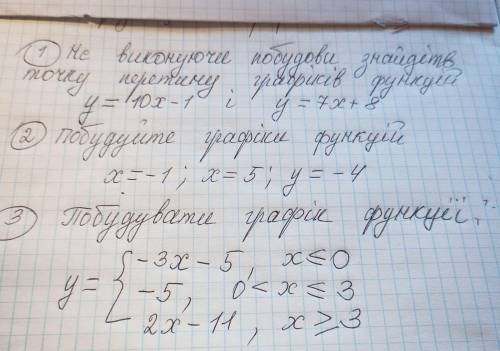 1 Не виконуючи побудови знайдіть
точку перетину графіків функцій
y = 10x - 1 і y = 7x + 8
2 Побудуйте графіки функцій
x = -1; x = 5; y = -4
3 Побудувати графік функції:
y = { -3x - 5, x ≤ 0
-5, 0 < x ≤ 3
2x - 11, x ≥ 3